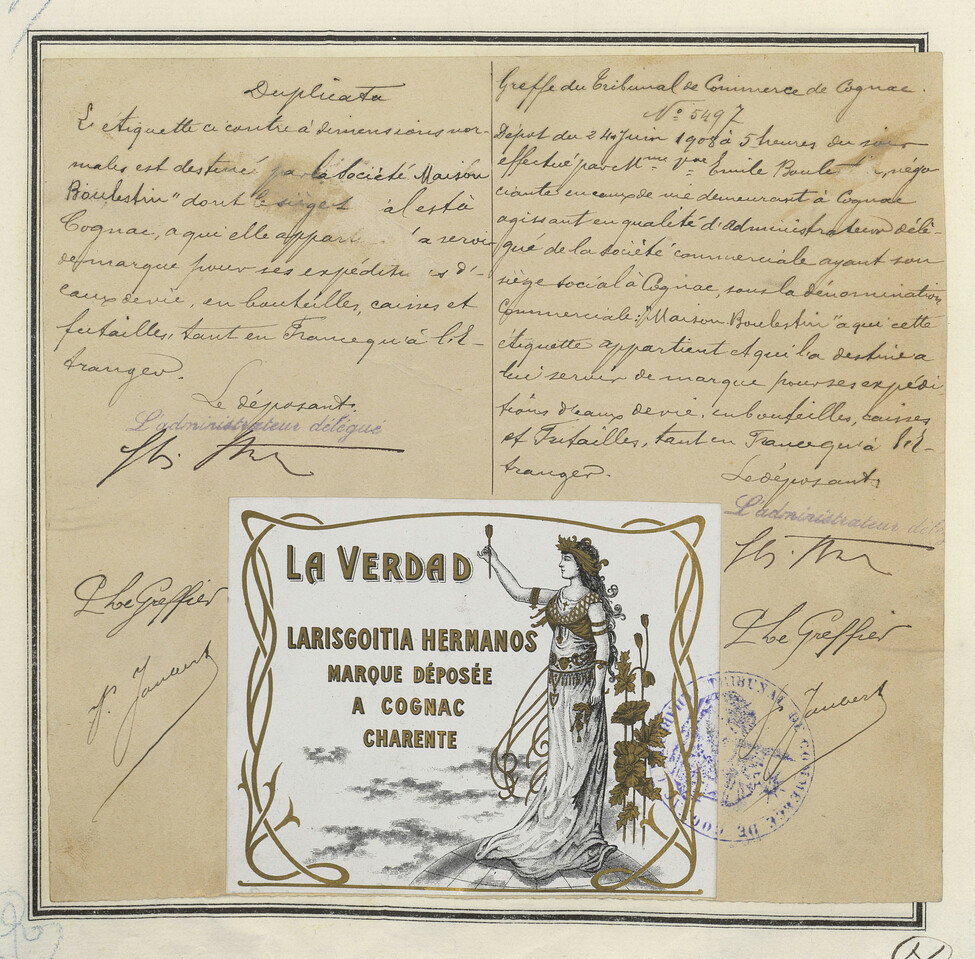 Duplicata
L'etiquette ci contre à dimensions nor-
males est destiné par la Société Maison
Boulestin" dont le siège al est à
Cognac, a qui elle appart a servir
de marque pour ses expéditi s d'-
eaux de vie, en bouteilles, caisses et
futailles, tant en France qu'à l'é-
tranger.
Le déposant.
L'administrateur délégué
P Le Greffier
Greffe du Tribunal de Commerce de Cognac.
N° 5497
Depot du 24 Juin 1908 à 5 heures du soir
effectué par Mme Vve Emile Boulesti, négo-
ciante en eaux de vie demeurant à Cognac
agissant en qualité d'administrateur délé-
gué de la Société commerciale ayant son
siège social à Cognac, sous la dénomination
Commerciale: "Maison Boulestin" a qui cette
étiquette appartient et qui l'a destine a
lui servir de marque pour ses expédi-
tions d'eaux de vie, en bouteilles, caisses
et Futailles, tant en France qu'à l'É-
tranger.
Le déposant,
L'administrateur délé
P Le Greffier
LA VERDAD
LARISGOITIA HERMANOS
MARQUE DÉPOSÉE
A COGNAC
CHARENTE
TRIBUNAL DE COMMERCE DE COG